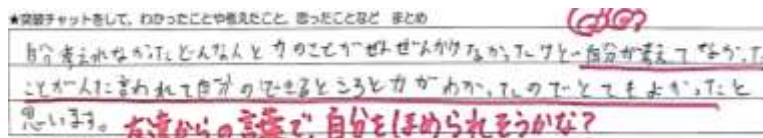 ★突破チャットをして、わかったことや考えたこと、思ったことなど まとめ
自分考えれなかったどんな人とか のことがぜんぜんかけなかったけど自分が考えてなかった
ことが人に言われて自分のできるところとかがわかったのでとてもよかったと
思います。 友達からの言葉で、自分をほめられそうかな?